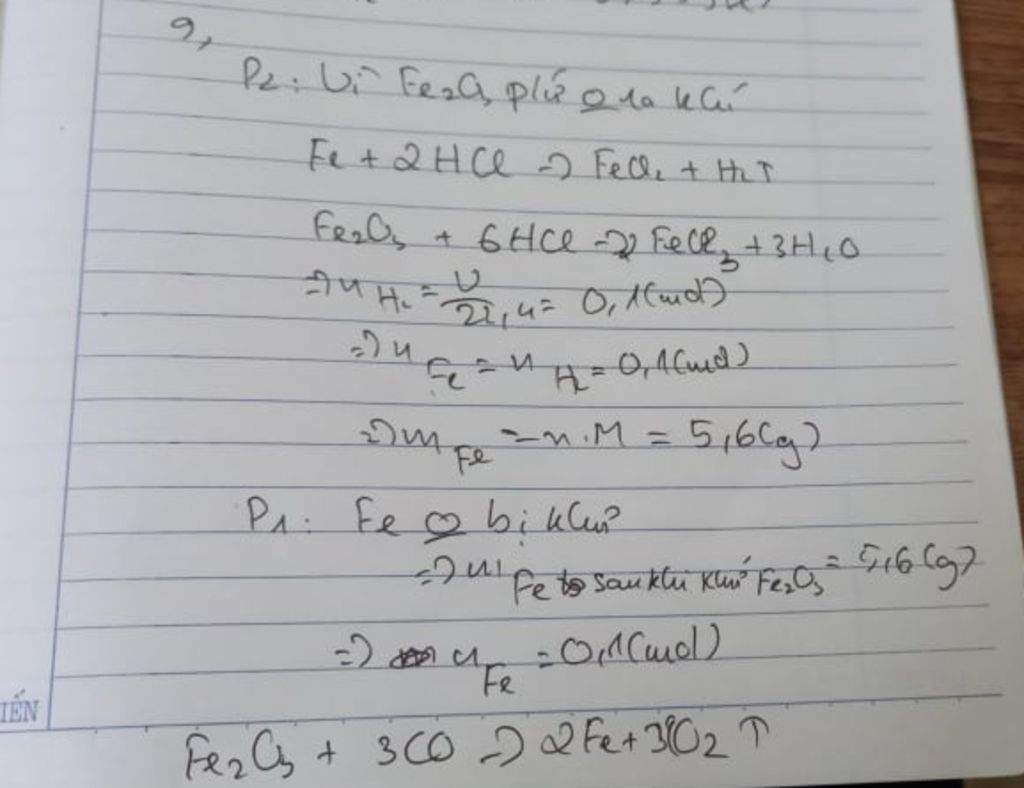 9,
P2: Vì Fe2O3 pứ ko ra khí
Fe + 2HCl → FeCl2 + H2↑
Fe2O3 + 6HCl → 2FeCl3 + 3H2O
⇒ n H2 = V/22,4 = 0,1(mol)
⇒ n Fe = n H2 = 0,1(mol)
⇒ m Fe = n.M = 5,6(g)
P1: Fe ko bị khử
⇒ m Fe sau khi khử Fe2O3 = 5,6(g)
⇒ n Fe = 0,1(mol)
IẾN
Fe2O3 + 3CO → 2Fe + 3CO2↑